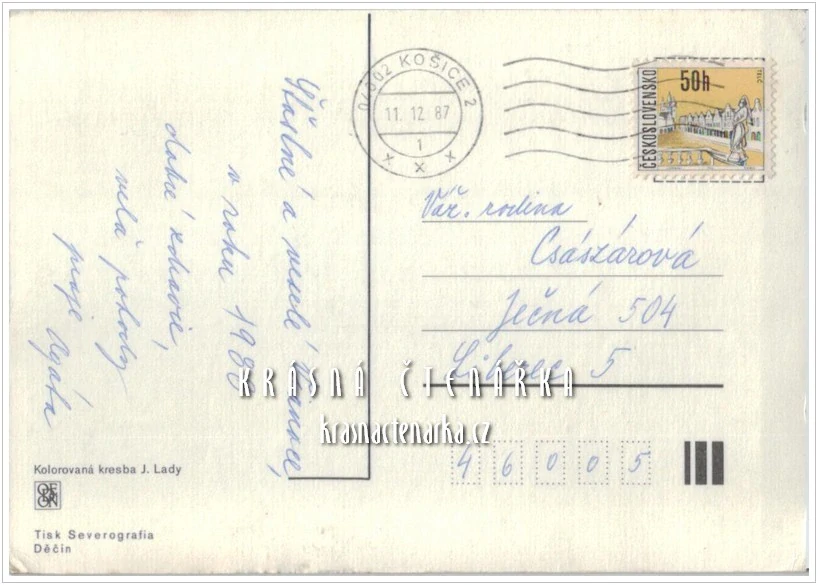 Šťastné a veselé Vianoce,
v roku 1988
dobré zdravie,
veľa pohody
praje Agáta
04002 KOŠICE 2
11. 12. 87
1
x x x
50h
ČESKOSLOVENSKO
TELČ
Váž. rodina
Császárová
Ječná 504
Liberec 5
KRÁSNÁ ČTENÁŘKA
krasnactenarka.cz
46005
Kolorovaná kresba J. Lady
ODEON
Tisk Severografia
Děčín